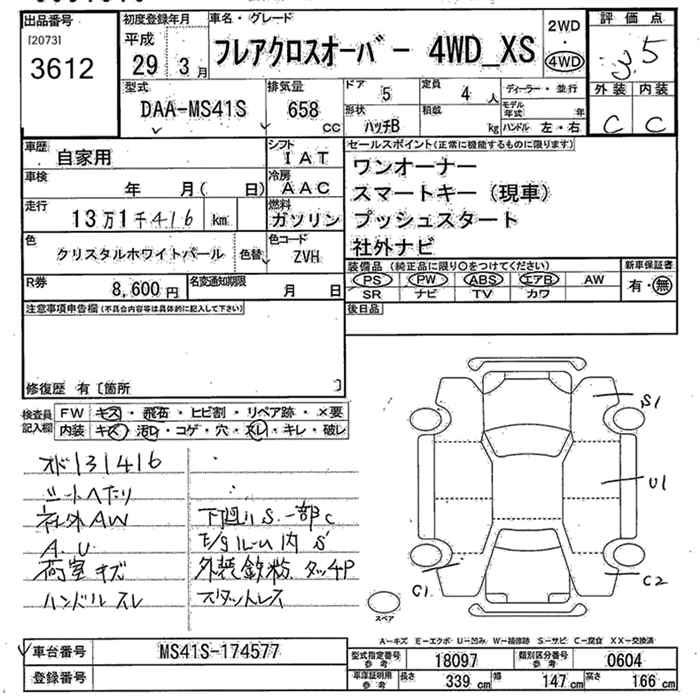 出品番号
[2073]
3612
初度登録年月
平成
29 3月
車名・グレード
フレアクロスオーバー 4WD_XS
2WD
・
4WD
評価点
3.5
外装 内装
C C
型式
DAA-MS41S
排気量
658 CC
ドア 5
定員 4 人
形状 ハッチB
積載 kg
ディーラー・並行
モデル年式 年
ハンドル 左・右
車歴 自家用
シフト IAT
車検 年 月( 日)
冷房 AAC
走行 13万1千416 km
燃料 ガソリン
色 クリスタルホワイトパール
色替
色コード ZVH
R券 8,600円
名変通知期限 月 日
セールスポイント(正常に機能するものに限ります)
ワンオーナー
スマートキー(現車)
プッシュスタート
社外ナビ
装備品(純正品に限り○をつけてください)
新車保証書
PS PW ABS エアB AW
有・無
SR ナビ TV カワ
後日品
注意事項申告欄(不具合内容等は具体的に記入して下さい)
修復歴 有〔箇所 〕
検査員記入欄
FW キズ・飛石・ヒビ割・リペア跡・×要
内装 キズ・汚れ・コゲ・穴・スレ・キレ・破レ
オド131416
シートヘタリ
社外AW
A.U
荷室キズ
ハンドルスレ
下廻りS.一部C
E/gルーム内S
外装鉄粉 タッチP
スタットレス
S1
U1
C1
C2
スペア
A-キズ E-エクボ U-凹み W-補修跡 S-サビ C-腐食 XX-交換済
車台番号 MS41S-174577
登録番号
型式指定番号 参考 18097
類別区分番号 参考 0604
車庫証明用 参考
長さ 339 cm
幅 147 cm
高さ 166 cm